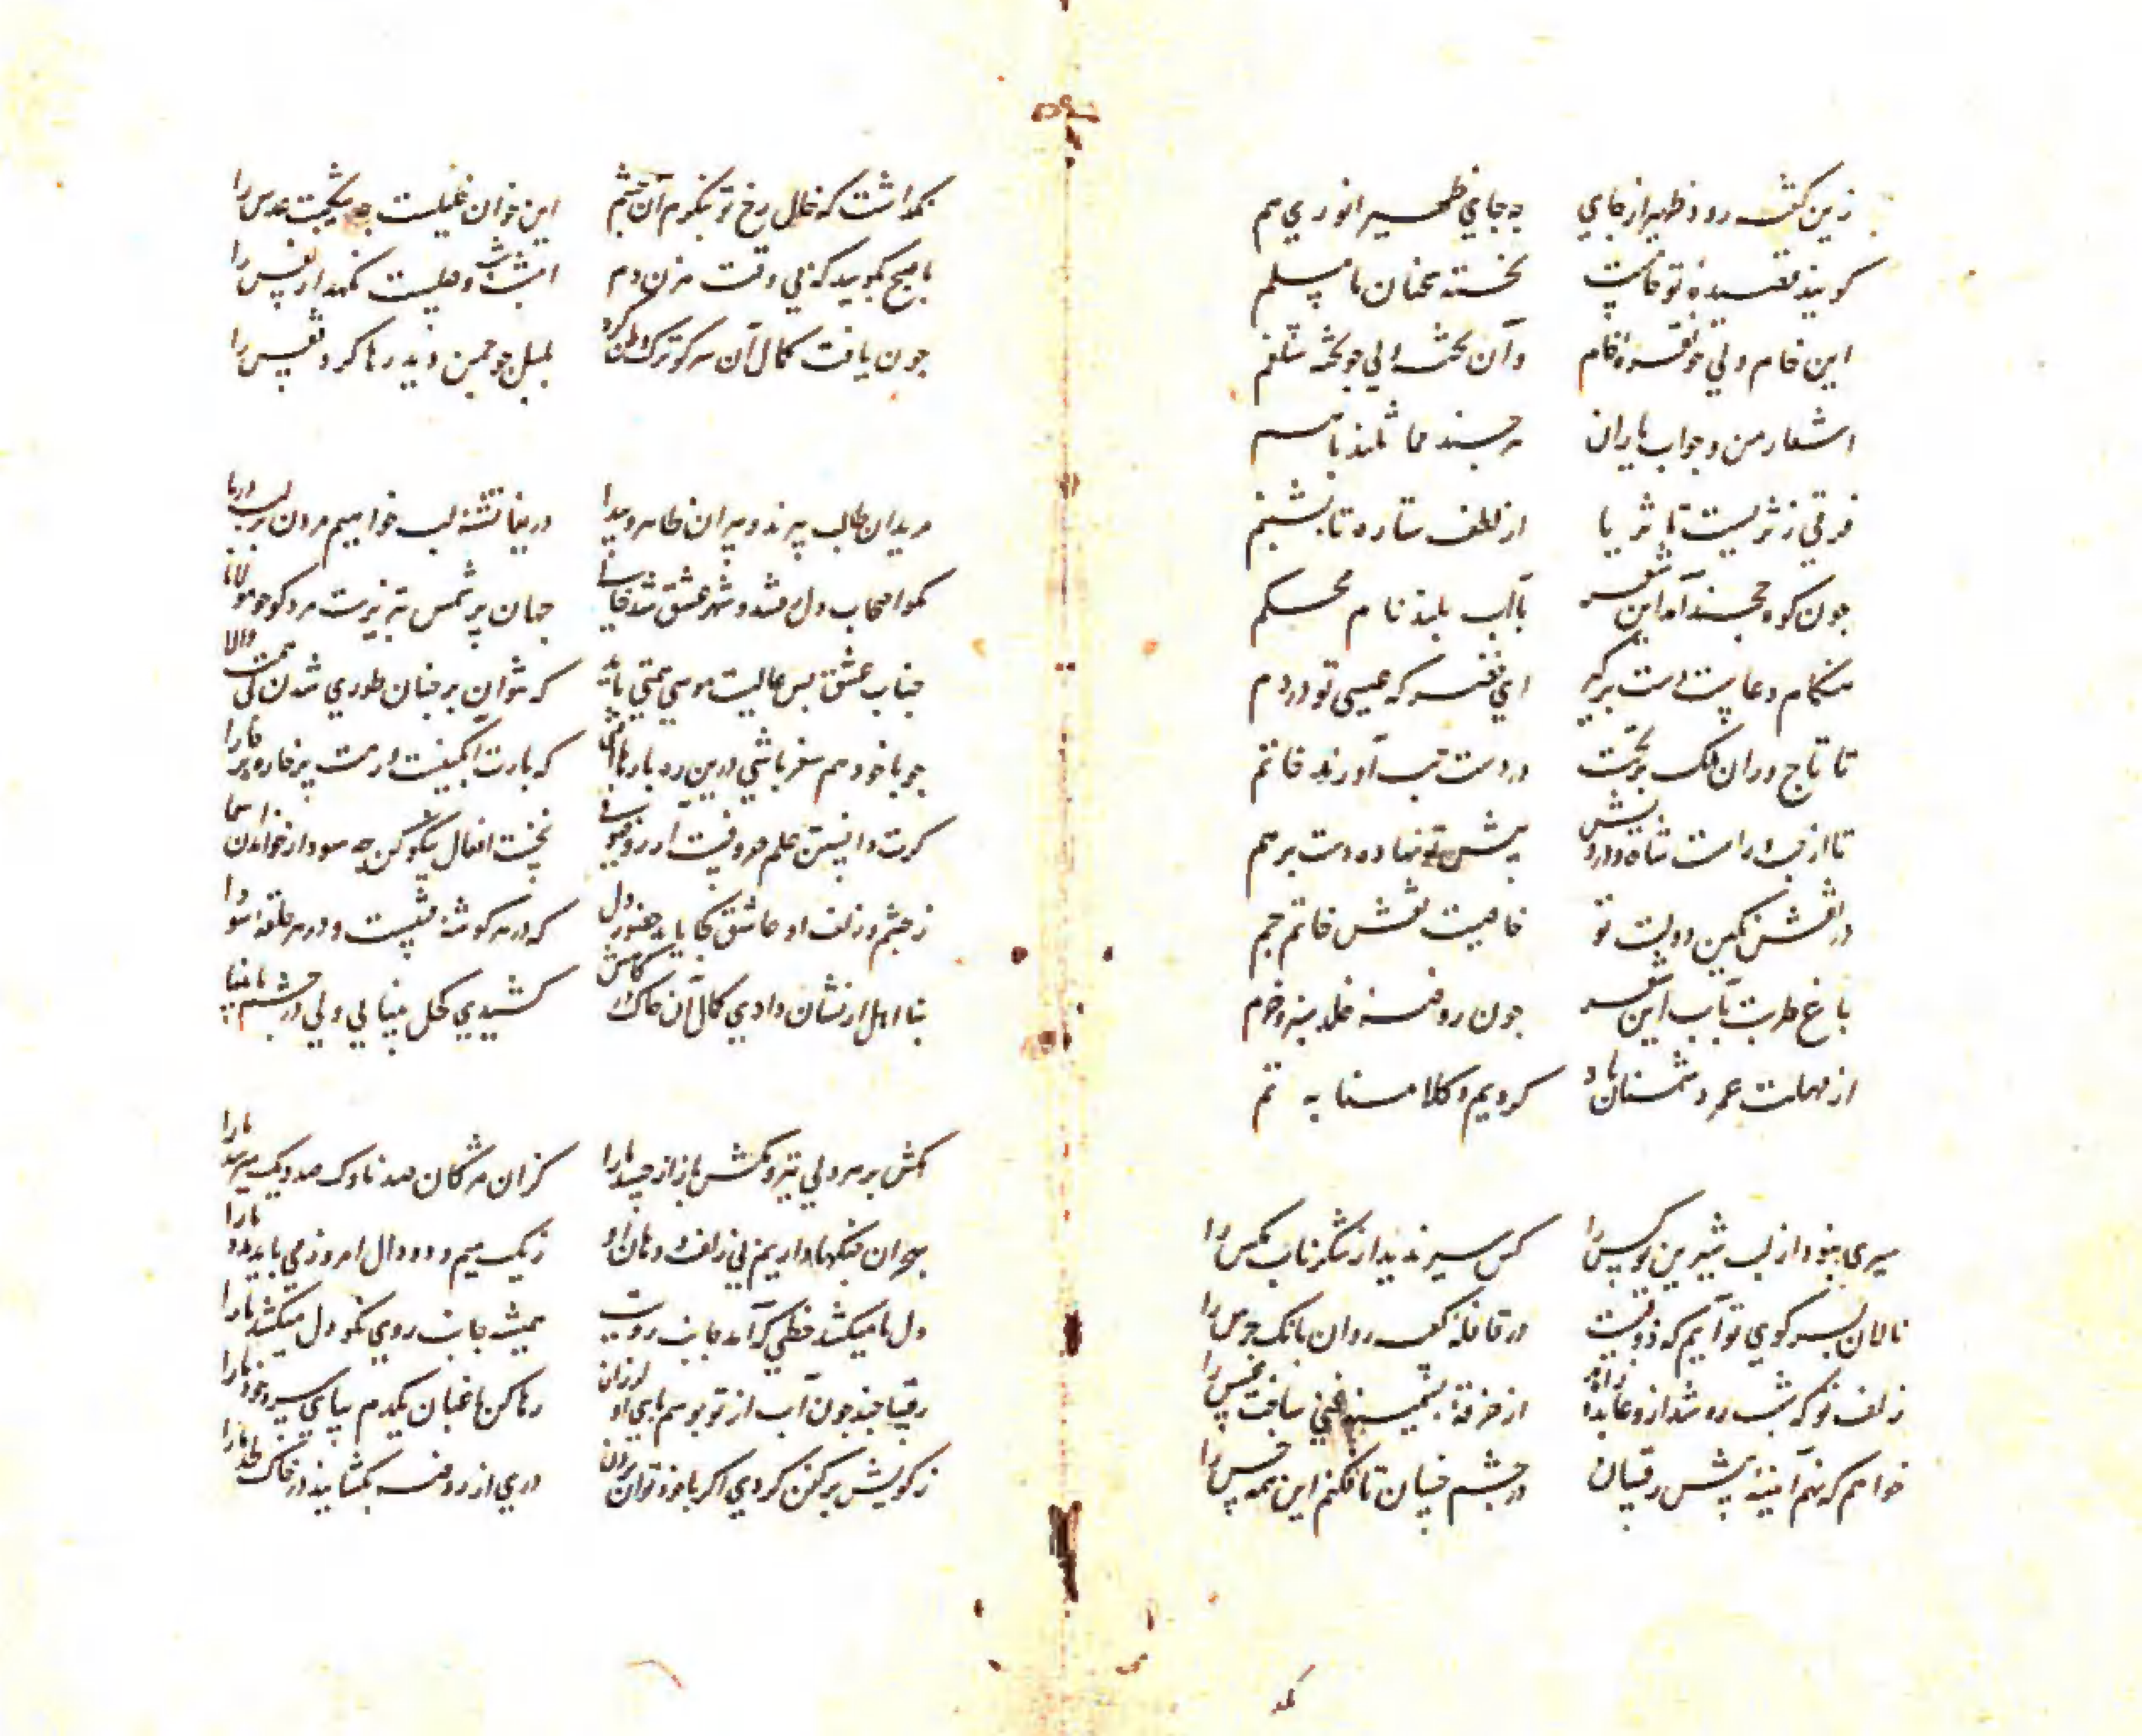 زین گفته رود ظهیر از جای چه جای ظهیر انوری هم
گویند قصیده تو خامست پخته سخنان نا مسلم
این خام ولی چو نقره خام وآن پخته ولی چو پخته شلغم
اشعار من و جواب یاران هر چند نماندند با هم
فرقی ز ثریست تا ثریا از لطف ستاره تا بشبنم
چون کوه خجند آمد این شعر با آب بلند نام محکم
هنگام دعاست دست برگیر ای فقر که عیسی تو در دم
تا تاج وران ملک بر تخت در دست چپ آورند خاتم
تا از چپ و راست شاه و درویش پیش تو نهاده دست بر هم
در نقش نگین دولت تو خاصیت نقش خاتم جم
باغ طربت بآب این شعر چون روضه خلد سبز و خرم
از مهلت عمر دشمنان باد کردیم و کلامنا به تم
سیری نبود از لب شیرین تو کس را کس سیر ندید از شکر ناب مگس را
نالان بسر کوی تو آییم که ذوقیست در قافله کعبه روان بانگ جرس را
زلف تو که شب رو شد ازو عابد و زاهد از خرقه پشمینه غنی ساخت عسس را
خواهم که نهم آینه پیش رقیبان در چشم خسیان تا فکنم این همه خس را
نگذاشت که خال رخ تو بنگرم آن چشم این خوان خلیلست چه بخشت عدس را
با صبح بگویید که بی وقت مزن دم امشب شب وصلست نگهدار نفس را
چون یافت کمال آن سر کو ترک وطن کرد بلبل چو چمن دید رها کرد قفس را
مریدان طالب پیرند و پیران ظاهر و پیدا دریغا تشنه لب خواهیم مردن بر لب دریا
مگو اصحاب دل رفتند و شهر عشق شد خالی جهان پر شمس تبریزست مرد کو چو مولانا
جناب عشق بس عالیست موسی همتی باید که نتوان بر چنان طوری شدن بی همت والا
چو با خود هم سفر باشی درین ره بارها افتی که بارت آبگینست و رهت پر خاره پر خارا
گرت دانستن علم حروفست آرزو صوفی نخست افعال نیکو کن چه سود از خواندن اسما
ز چشم و زلف او عاشق کجا یابد حضور دل که در هر گوشه فتنست و در هر حلقه سودا
بنا اهل ار نشان دادی کمال آن خاک پایش کشیدی کحل بینایی ولی در چشم نابینا
مکش بر هر دلی تیر و مکش باز از جسد ما را کزان مژگان صد ناوک صد و یک میرسد ما را
بهجران جنگها داریم بی زلف و دهان او ز یک میم و دو دال امروز می باید مدد ما را
دل ما میکشد خطی کز آمد جانب رویت همیشه جانب روی نکو دل میکشد ما را
رقیبا چند چون آب از تو بوسم پای او لرزان رها کن باغبان یکدم بپای سرو خود ما را
ز کویش بر مکن گردی اگر باد توان بردن دری از روضه بگشایید در خاک لحد ما را